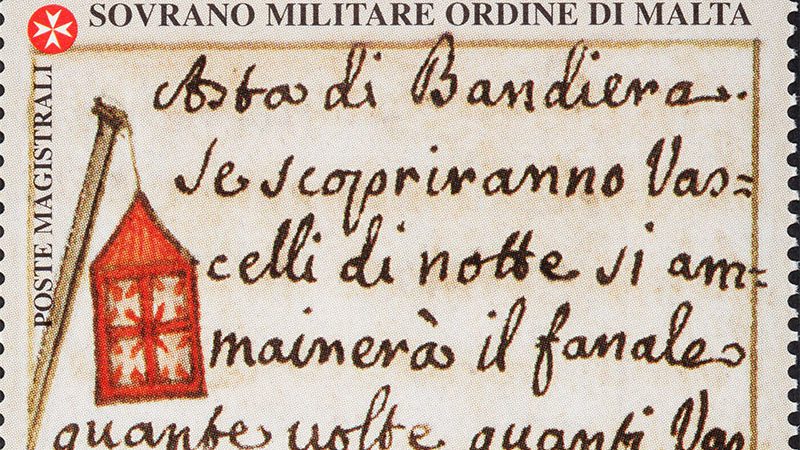 SOVRANO MILITARE ORDINE DI MALTA
POSTE MAGISTRALI
Asta di Bandiera.
se scopriranno Vas=
celli di notte si am=
mainerà il fanale
quante volte quanti Vas